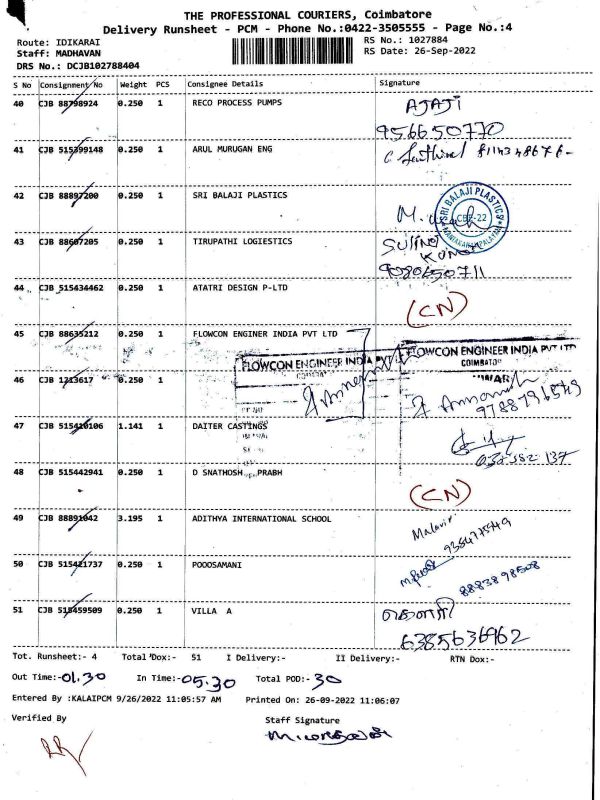 THE PROFESSIONAL COURIERS, Coimbatore
Delivery Runsheet - PCM - Phone No.:0422-3505555 - Page No.:4
Route: IDIKARAI
RS No.: 1027884
Staff: MADHAVAN
RS Date: 26-Sep-2022
DRS No.: DCJB102788404
S No Consignment No Weight PCS Consignee Details Signature
40 CJB 88798924 0.250 1 RECO PROCESS PUMPS AJAJI
956650770
41 CJB 515399148 0.250 1 ARUL MURUGAN ENG
42 CJB 88897200 0.250 1 SRI BALAJI PLASTICS
SRI BALAJI PLASTICS
CBE-22
43 CJB 88607205 0.250 1 TIRUPATHI LOGIESTICS
KUMAR
9080650711
44 CJB 515434462 0.250 1 ATATRI DESIGN P-LTD (CN)
45 CJB 88635212 0.250 1 FLOWCON ENGINER INDIA PVT LTD
FLOWCON ENGINEER INDIA PVT LTD
FLOWCON ENGINEER INDIA PVT LTD
COIMBATORE
46 CJB 1213617 0.250 1
9788796549
47 CJB 515410106 1.141 1 DAITER CASTINGS
48 CJB 515442941 0.250 1 D SNATHOSH PRABH (CN)
49 CJB 88891042 3.195 1 ADITHYA INTERNATIONAL SCHOOL
50 CJB 515421737 0.250 1 POOOSAMANI
8883898508
51 CJB 515459509 0.250 1 VILLA A
6385636962
Tot. Runsheet:- 4 Total Dox:- 51 I Delivery:- II Delivery:- RTN Dox:-
Out Time:-01.30 In Time:-05.30 Total POD:-30
Entered By :KALAIPCM 9/26/2022 11:05:57 AM Printed On: 26-09-2022 11:06:07
Verified By Staff Signature